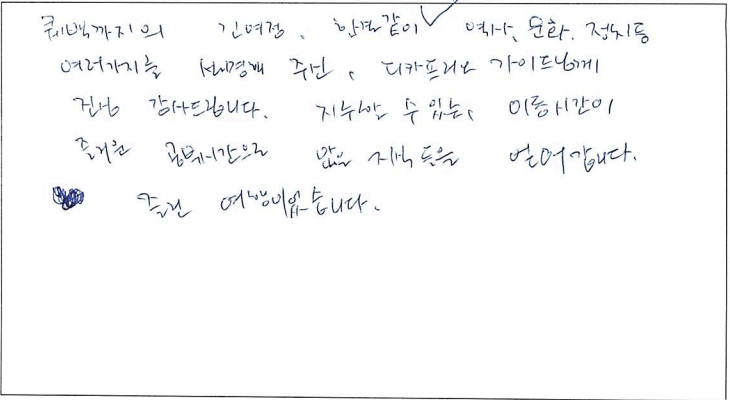 퀘백까지의 긴여정, 한결같이 역사, 문화, 정치등
여러가지를 설명해 주신, 디카프리오 가이드님께
진심 감사드립니다. 지루할 수 있는, 이동시간이
즐거운 공부시간으로 많은 지식 등을 얻어갑니다.
즐런 여행이었습니다.